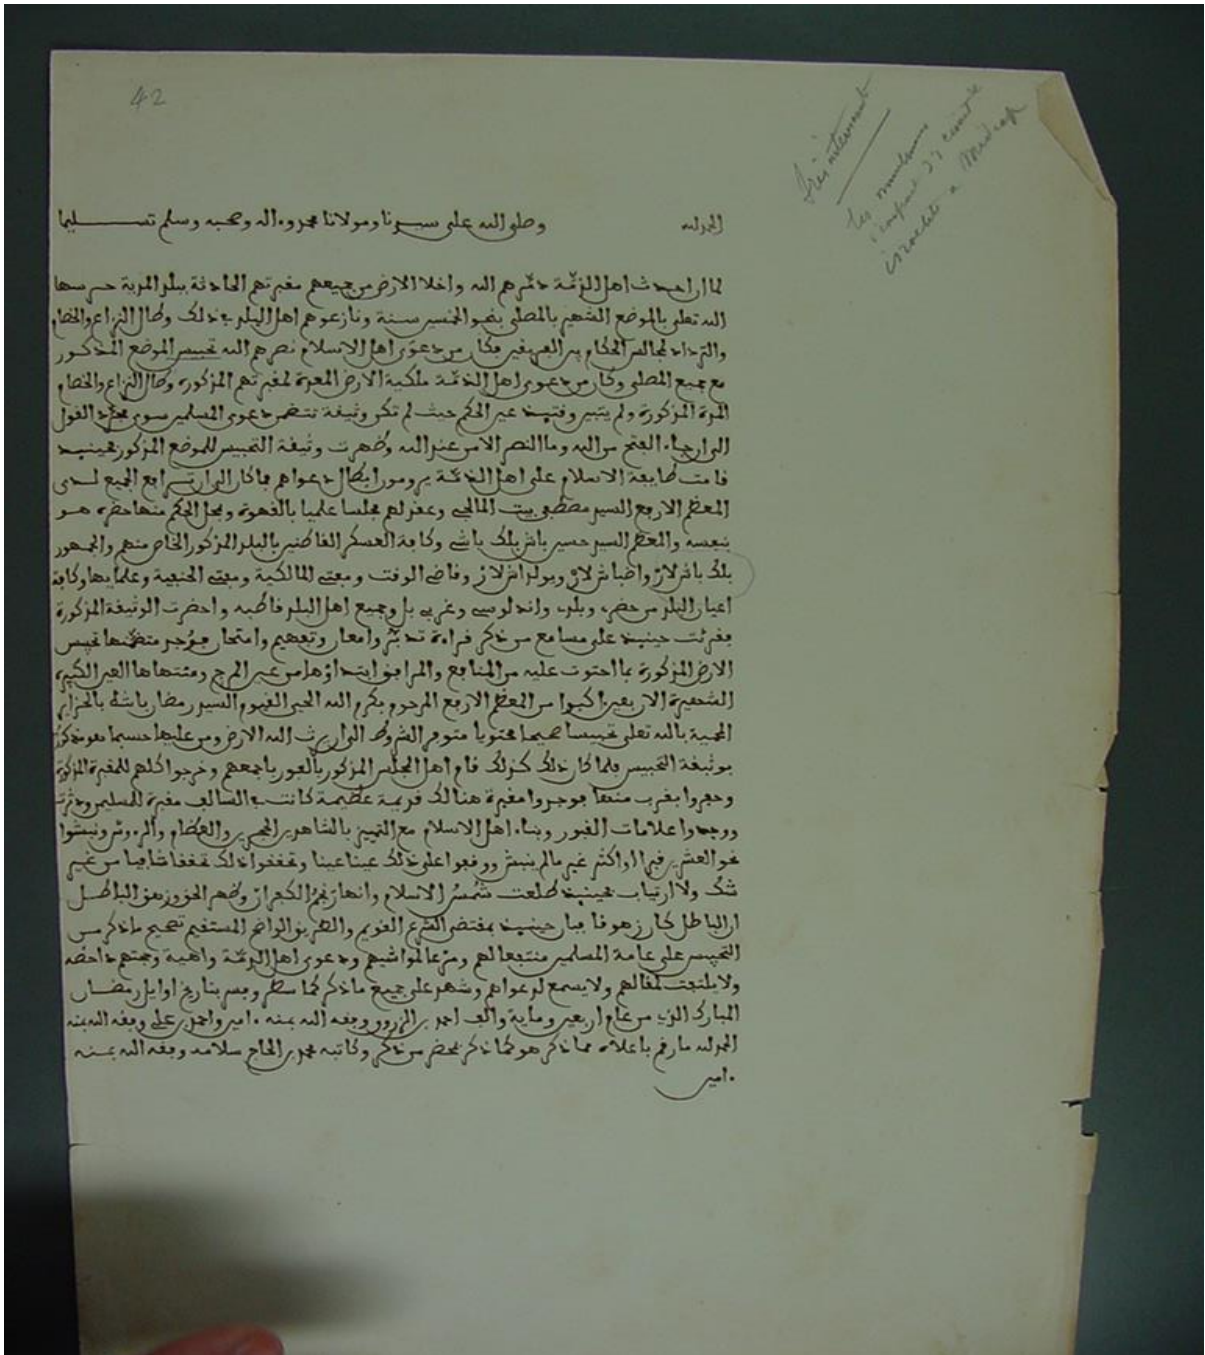 42
Très intéressant
Les musulmans
israélite à Médéah
الحمد لله وصلى الله على سيدنا ومولانا محمد وءاله وصحبه وسلم تسليما
لما ان احدث اهل الذمّة دمّرهم الله واخلا الارض من جميعهم مقبرتهم الحادثة ببلد المدية حرسها
الله تعلى بالموضع الشهير بالمصلى بنحو الخمسين سنة ونازعوهم اهل البلد في ذلك وطال النزاع والخصام
والترداد لمجالس الحكام بين الفريقين فكان من دعوى اهل الاسلام نصرهم الله تحبيس الموضع المذكور
مع جميع المصلى وكان من دعوى اهل الذمّة ملكية الارض المعدة لمقبرتهم المذكورة وطال النزاع والخصام
المدة المذكورة ولم يتبين وقتيذ عين الحكم حيث لم تكن وثيقة تتضمن دعوى المسلمين سوى مجرّد القول
الى ان جاء الفتح من الله وما النصر الا من عند الله وظهرت وثيقة التحبيس للموضع المذكور فحينيذ
قامت طايفة الاسلام على اهل الذمّة يرومون ابطال دعواهم فما كان الى ان ترافع الجميع لدى
المعظم الارفع السيد مصطفى بيت المالجي وعقد لهم مجلسا علميا بالقهوة ومحل الحكم منها حضره هو
بنفسه والمعظم السيد حسين باش بلك باشي وكافة العسكر القاطنين بالبلد المذكور الخاص منهم والجمهور
بلك باش لار واضباش لار وبولداش لار وقاضي الوقت ومفتي المالكية ومفتي الحنفية وعلمايها وكافة
اعيان البلد من حضري وبلدي واندلوسي وغربي بل وجميع اهل البلد قاطبة واحضرت الوثيقة المذكورة
فقرئت حينيذ على مسامع من ذكر قراءة تدبّر وامعان وتفهيم وامتحان فوُجد متضمّنها تحبيس
الارض المذكورة بما احتوت عليه من المنافع والمرافق ابتداؤها من عين المرج ومنتهاها العين الكبيرة
الشهيرة الان بعين اكبوا من المعظم الارفع المرحوم بكرم الله الحيى القيوم السيد رمضان باشا بالجزاير
المحمية بالله تعلى تحبيسا صحيحا محتويا متوفر الشروط الى ان يرث الله الارض ومن عليها حسبما هو مذكور
بوثيقة التحبيس فلما كان ذلك كذلك قام اهل المجلس المذكور بالفور باجمعهم وخرجوا كلهم للمقبرة المذكورة
وحفروا بقرب منها فوجدوا مقبرة هنالك قديمة عظيمة كانت في السالف مقبرة للمسلمين ودثرت
ووجدوا علامات القبور وبناء اهل الاسلام مع التمييز بالشاهدين الحجرين والعظام والرءوس ونبشوا
نحو العشرين قبرا او اكثر غير ما لم ينبش ووقفوا على ذلك عينا عينا وتحققوا ذلك تحققا شافيا من غير
شك ولا ارتياب فحينيذ طلعت شمسُ الاسلام وانهارَ نجمُ الكفران وظهر الحق وزهق الباطل
ان الباطل كان زهوقا فبان حينيذ بمقتضى الشرع القويم والطريق الواضح المستقيم تصحيح ما ذكر من
التحبيس على عامة المسلمين منتفعا لهم ومرْعا لمواشيهم ودعوى اهل الذمّة واهية وحجتهم داحضه
ولا يلتفت لمقالهم ولا يسمع لدعواهم وشهد على جميع ما ذكر كما سطر وفسر بتاريخ اوايل رمضان
المبارك الذي من عام اربعين وماية والف احمد بن الزروق وفقه الله بمنه ءامين واحمد بن علي وفقه الله بمنه
الحمد لله ما رقم باعلاه مما ذكر هو كما ذكر بمحضر من ذكر وكاتبه محمد بن الحاج سلامه وفقه الله بمنه
ءامين